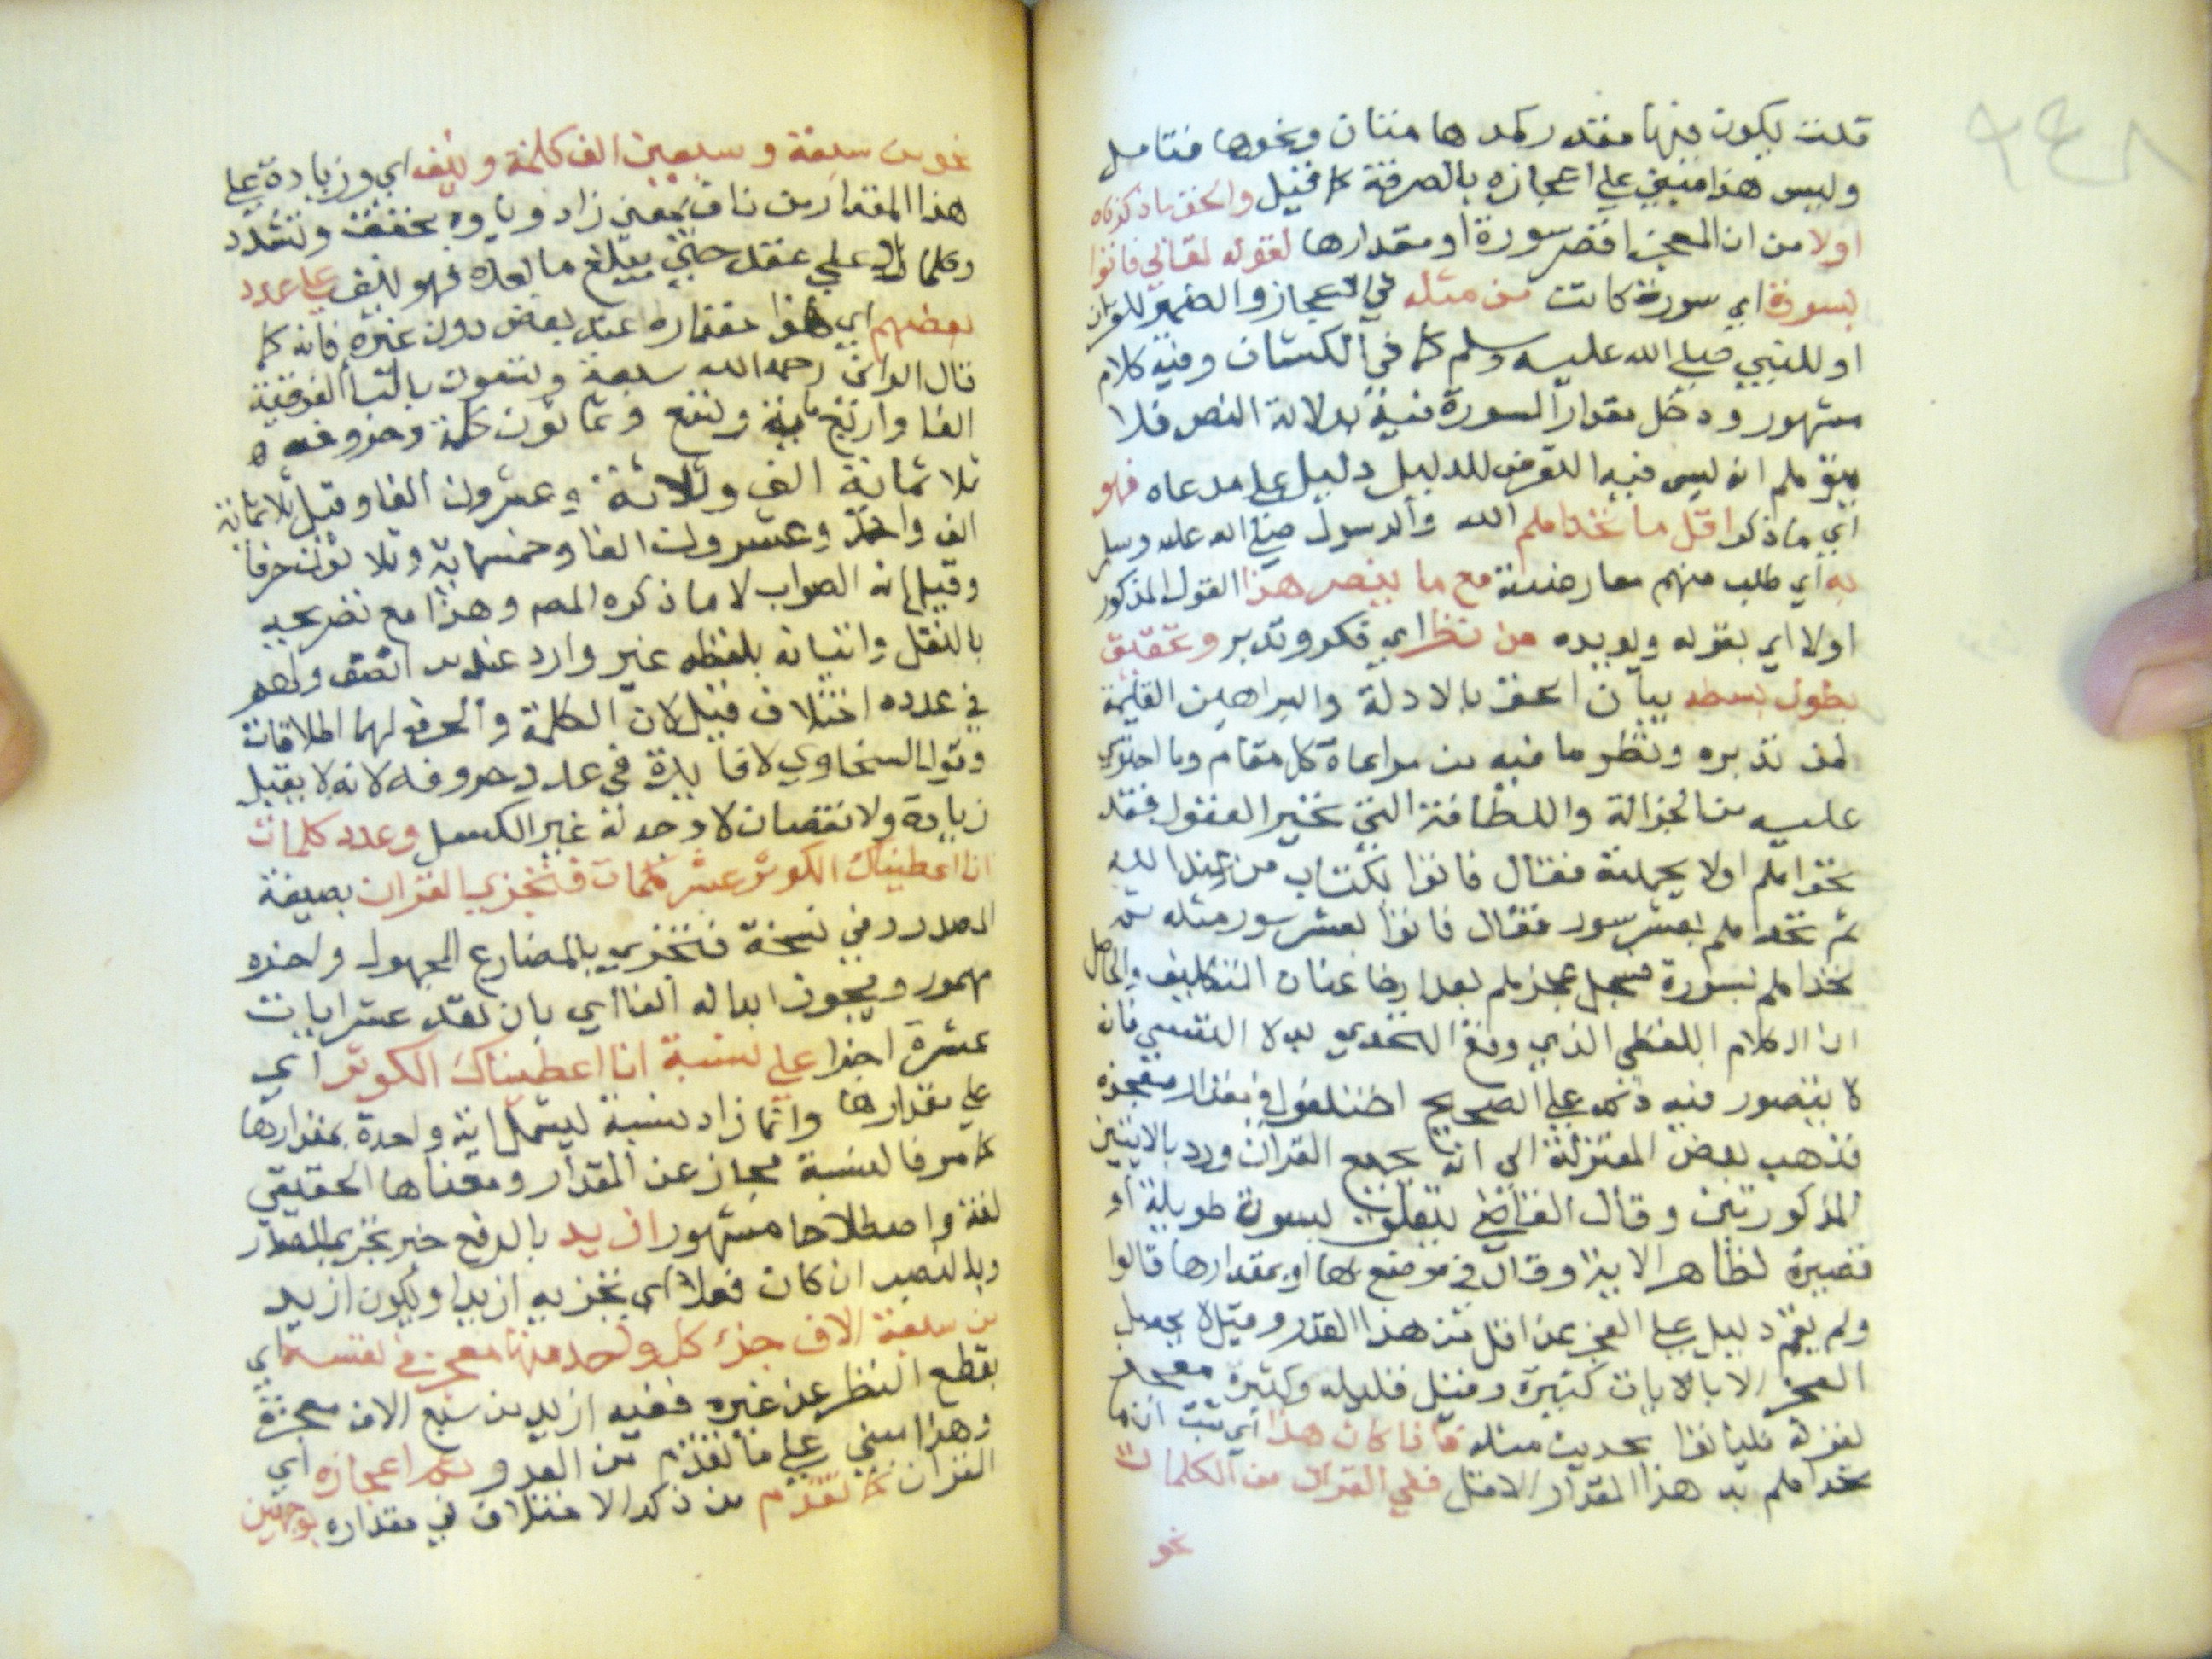 قلت يكون فيها مقدر كمدها متان ونحوها فتامل
وليس هذا مبني على اعجازه بالصرفة كما قيل والحق ما ذكرناه
اولا من ان المعجز اقصر سورة او مقدارها لقوله تعالى فاتوا
بسورة اي سورة كانت من مثله في الاعجاز والضمير للقران
او للنبي صلى الله عليه وسلم كما في الكشاف وفيه كلام
مشهور ودخل مقدار السورة فيه بدلالة النص فلا
يتوهم انه ليس فيه التعرض للدليل دليل على مدعاه فهو
اي ما ذكر اقل ما تحداهم الله والرسول صلى الله عليه وسلم
به اي طلب منهم معارضته مع ما ينصر هذا القول المذكور
اولا اي يقويه ويويده من نظر اي فكر وتدبر وتحقيق
يطول بسطه بيان الحق بالادلة والبراهين القايمة
لمن تدبره ونظر ما فيه من مراعاة كل مقام وما احتوى
عليه من الجزالة واللطافة التي تحير العقول فقد
تحداهم اولا بجملته فقال فاتوا بكتاب من عند الله
ثم تحداهم بعشر سور فقال فاتوا بعشر سور مثله ثم
تحداهم بسورة فسجل عجزهم بعد ارخا عنان التكليف والحاصل
ان الكلام اللفظي الذي وقع التحدي به لا النفسي فان
لا يتصور فيه ذلك على الصحيح اختلفوا في مقدار معجزه
فذهب بعض المعتزلة الى انه بجميع القران ورد بالايتين
المذكورتين وقال القاضي يتعلق بسورة طويلة او
قصيرة لظاهر الاية وقال في موضع بها او بمقدارها قالوا
ولم يقم دليل على العجز عن اقل من هذا القدر وقيل لا يحصل
العجز الا بالايات كثيرة وقيل قليله وكثيره معجز
لقوله فلياتوا بحديث مثله فاذا كان هذا اي ثبت ان ما
تحداهم به هذا المقدار الاقل ففي القران من الكلمات
نحو
نحو من سبعة وسبعين الف كلمة ونيف اي وزيادة على
هذا المقدار من ناف بمعنى زاد وياوه تخفف وتشدد
وكلما زاد على عقد حتى يبلغ ما بعده فهو نيف على عدد
بعضهم اي هذا مقداره عند بعض دون غيره فانه كما
قال الداني رحمه الله سبعة وتسعون بالتا الفوقية
الفا واربع ماية وتسع وثمانون كلمة وحروفه
ثلاثماية الف وثلاثة وعشرون الفا وقيل ثلاثماية
الف واحد وعشرون الفا وخمسماية وثلاثون حرفا
وقيل انه الصواب لا ما ذكره المص وهذا مع تصريحه
بالنقل واتيانه بلفظه غير وارد عند من انصف ولهم
في عدده اختلاف قيل لان الكلمة والحرف لهما اطلاقات
وقول السخاوي لا فايدة في عدد حروفه لانه لا يقبل
زيادة ولا نقصان لا وجه له غير الكسل وعدد كلمات
انا اعطيناك الكوثر عشر كلمات فتجزي القران بصيغة
المصدر وفي نسخة فتتجزي بالمضارع المجهول واخره
مهموز ويجوز ابداله الفا اي بان تعد عشر ايات
عشرة اجزا على نسبة انا اعطيناك الكوثر اي
على مقدارها وانما زاد نسبة ليشمل اية واحدة بمقدارها
كما مر فالنسبة مجاز عن المقدار ومعناها الحقيقي
لغة واصطلاحا مشهور ازيد بالرفع خبر تجزي المصدر
وبالنصب ان كان فعلا اي تجزيه ازيد او يكون ازيد
من سبعة الاف جزء كل واحد منها معجز في نفسه اي
بقطع النظر عن غيره ففيه ازيد من سبع الاف معجزة
وهذا مبني على ما تقدم من العدد ثم اعجازه اي
القران كما تقدم من ذكر الاختلاف في مقداره بوجهين